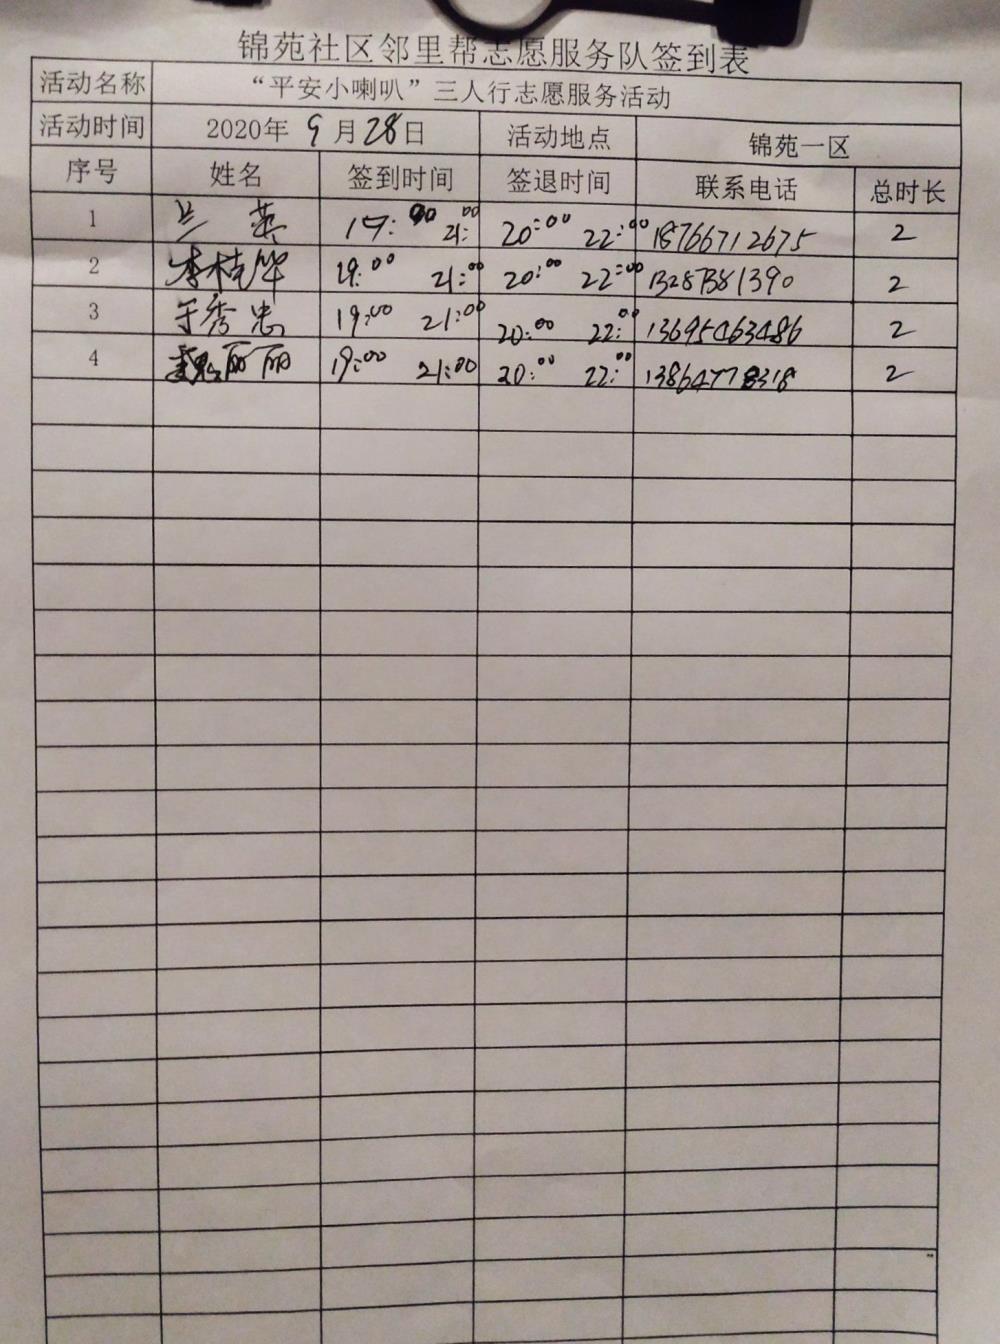 锦苑社区邻里帮志愿服务队签到表
活动名称 “平安小喇叭”三人行志愿服务活动
活动时间 2020年 9月28日 活动地点 锦苑一区
序号 姓名 签到时间 签退时间 联系电话 总时长
1 兰英 19:00 21:00 20:00 22:00 18766712675 2
2 李桂华 19:00 21:00 20:00 22:00 13287381390 2
3 于秀忠 19:00 21:00 20:00 22:00 13695463486 2
4 魏丽丽 19:00 21:00 20:00 22:00 13864778318 2